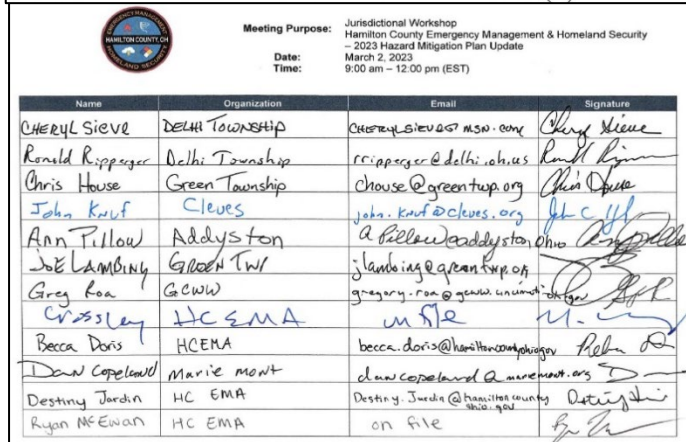 EMERGENCY MANAGEMENT
HAMILTON COUNTY, OH
HOMELAND SECURITY
Meeting Purpose: Jurisdictional Workshop
Hamilton County Emergency Management & Homeland Security
– 2023 Hazard Mitigation Plan Update
Date: March 2, 2023
Time: 9:00 am – 12:00 pm (EST)
Name Organization Email Signature
CHERYL Sieve DELHI TOWNSHIP Cheryl Sieve
Ronald Ripperger Delhi Township rripperger@delhi.oh.us
Chris House Green Township chouse@greentwp.org Chris House
John Knuf Cleves john.knuf@cleves.org
Ann Pillow Addyston
JOE LAMBING GREEN TWP
Greg Roa GCWW
Crossley HC EMA on file
Becca Doris HCEMA becca.doris@hamiltoncountyohio.gov
Dan Copeland Marie mont dancopeland@mariemont.org
Destiny Jordin HC EMA Destiny.Jordin@hamiltoncounty
ohio.gov
Ryan McEwan HC EMA on file